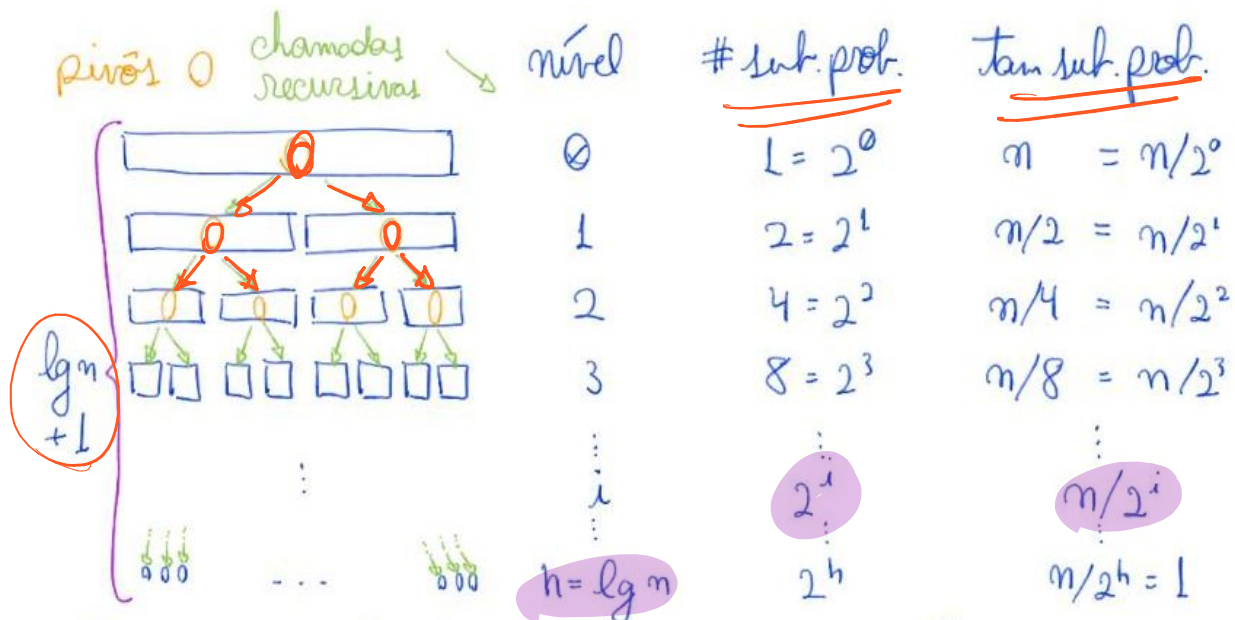 pivôs 0 chamadas recursivas nível # sub.prob. tam sub.prob.
0 1 = 2^0 n = n/2^0
1 2 = 2^1 n/2 = n/2^1
2 4 = 2^2 n/4 = n/2^2
lg n + 1 3 8 = 2^3 n/8 = n/2^3
i 2^i n/2^i
... h = lg n 2^h n/2^h = 1